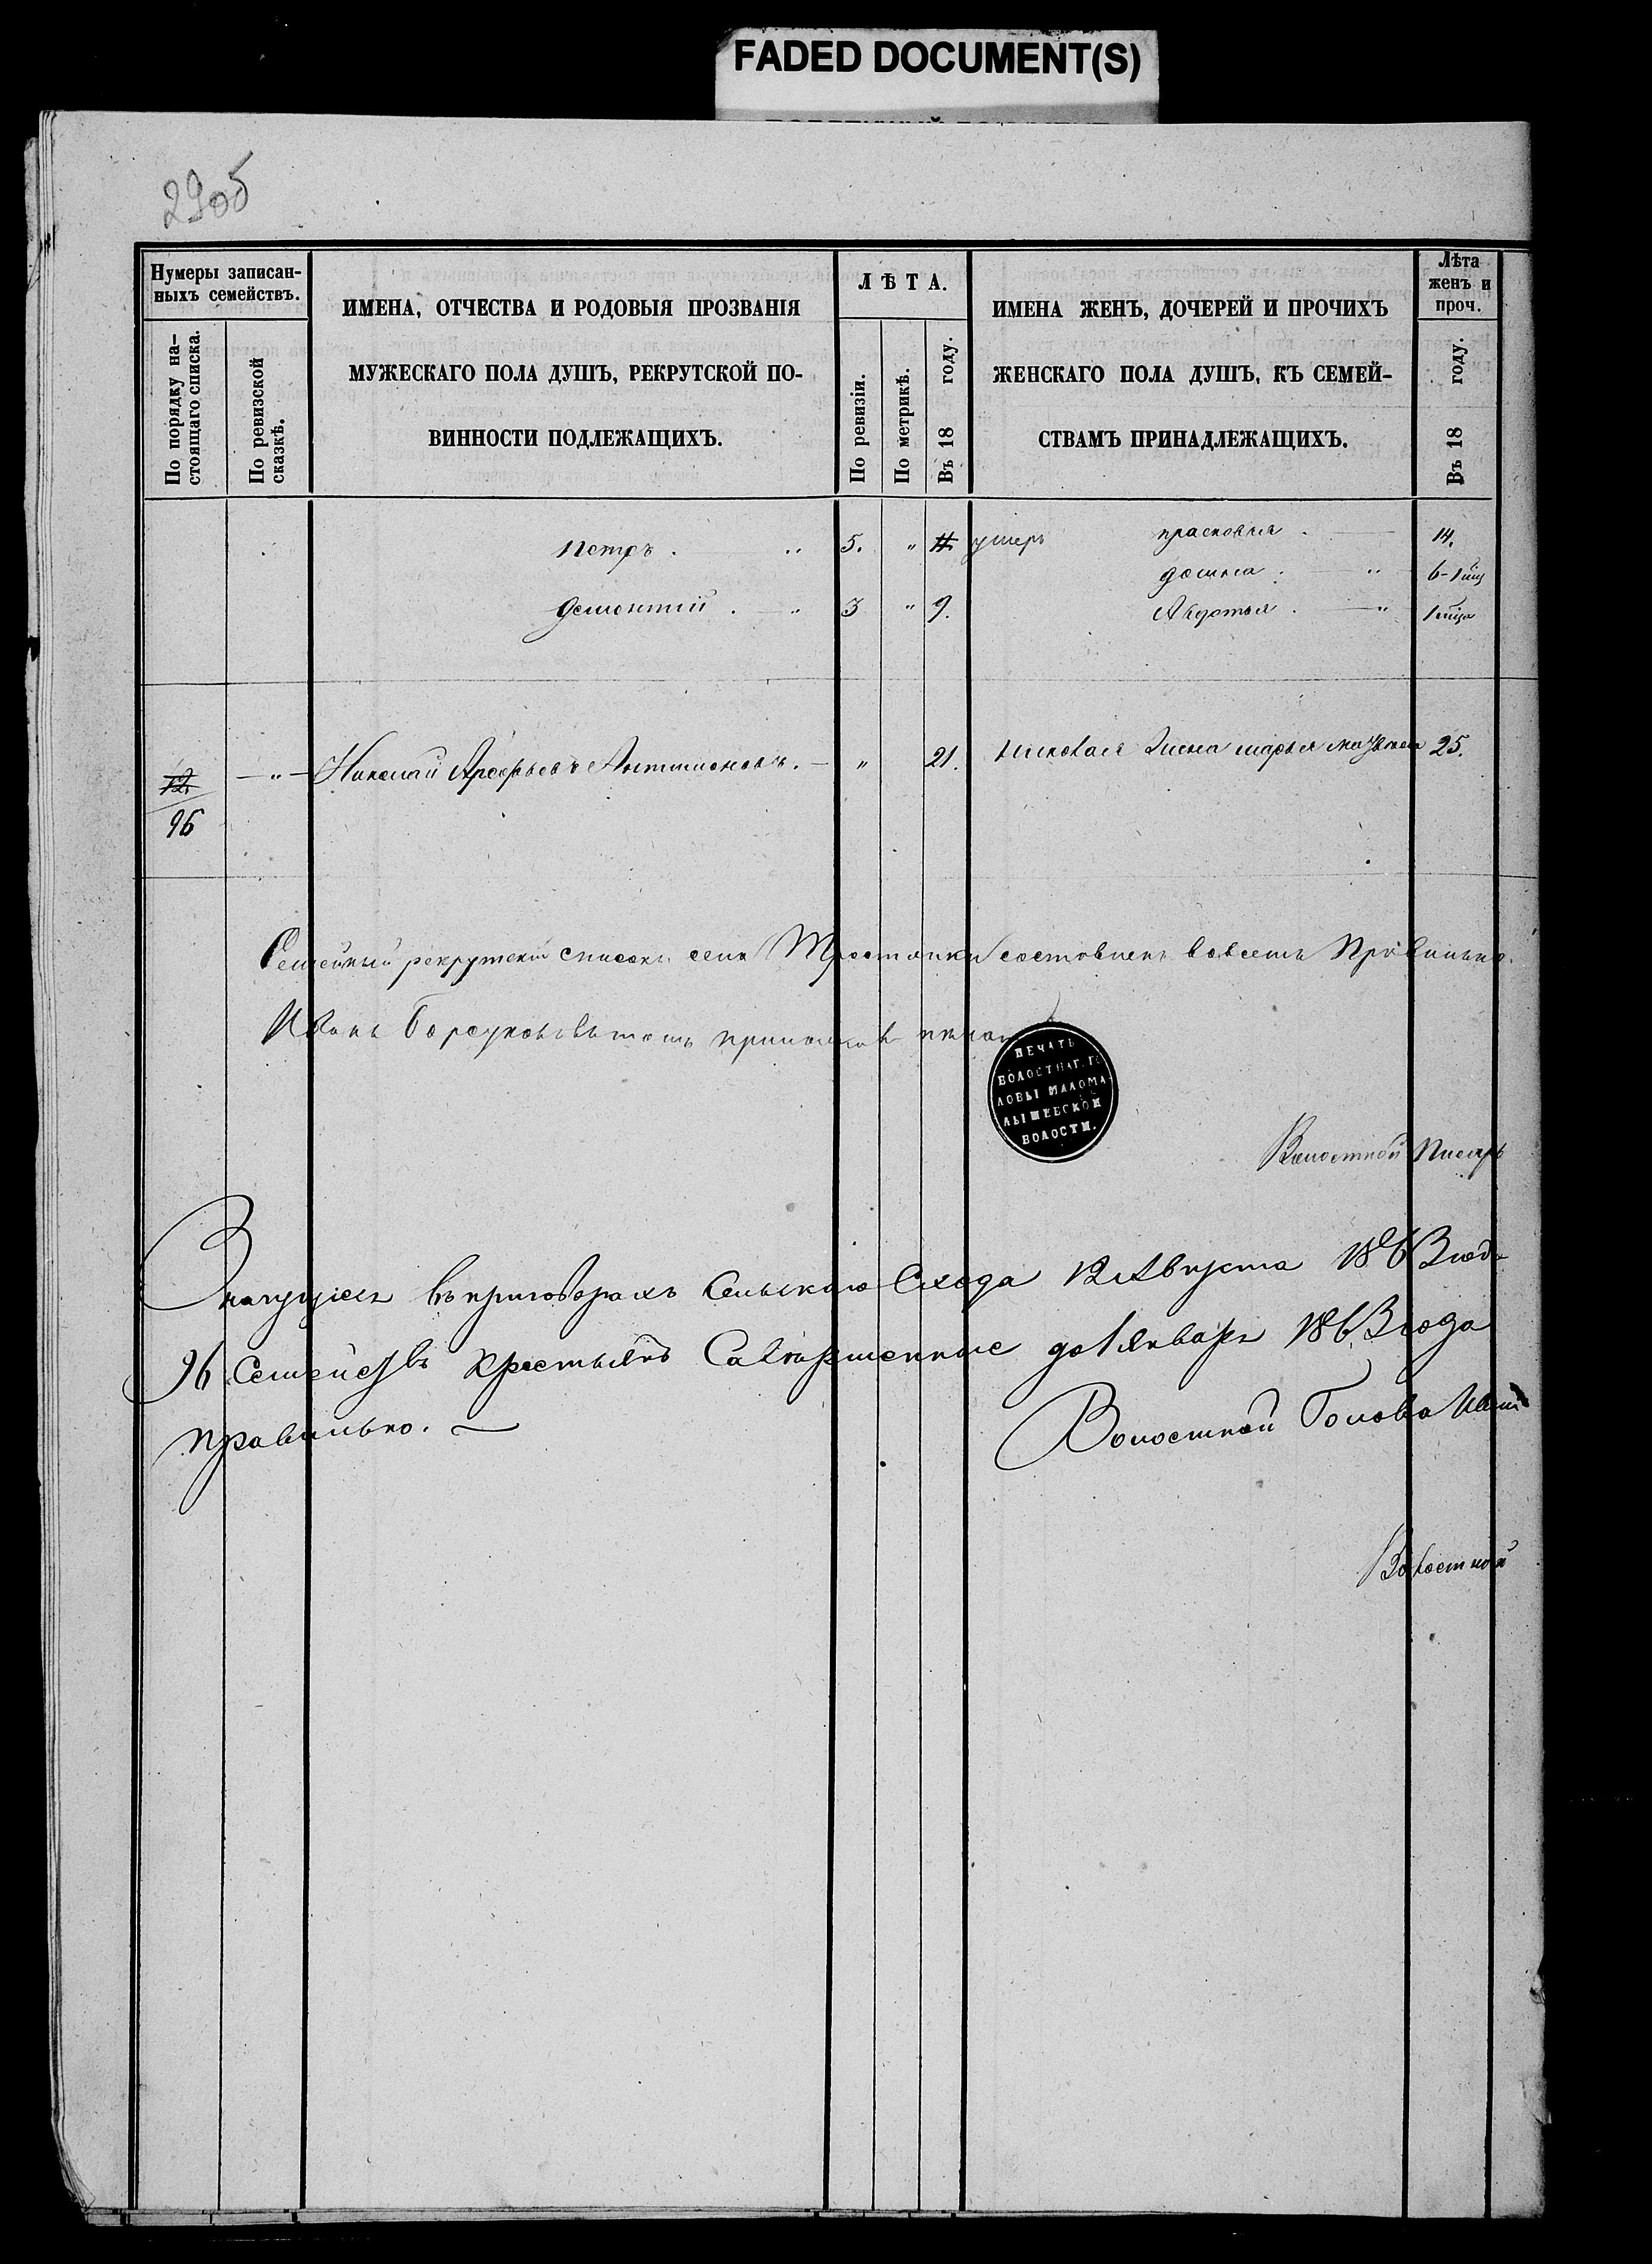 FADED DOCUMENT(S)
29об
Нумеры записан-
ныхъ семействъ.
По порядку на-
стоящаго списка.
По ревизской
сказкѣ.
ИМЕНА, ОТЧЕСТВА И РОДОВЫЯ ПРОЗВАНІЯ
МУЖЕСКАГО ПОЛА ДУШЪ, РЕКРУТСКОЙ ПО-
ВИННОСТИ ПОДЛЕЖАЩИХЪ.
ЛѢТА.
По ревизіи.
По метрикѣ.
Въ 18 году.
ИМЕНА ЖЕНЪ, ДОЧЕРЕЙ И ПРОЧИХЪ
ЖЕНСКАГО ПОЛА ДУШЪ, КЪ СЕМЕЙ-
СТВАМЪ ПРИНАДЛЕЖАЩИХЪ.
Лѣта
женъ и
проч.
Въ 18 году.
Петръ . " 5. " умеръ Прасковья . 14.
Домна . "
Дементий . " 3 " 9. Авдотья . "
12. — " — Николай Арефьевъ Антипоновъ. — " 21. Николая Жена Марья 25.
96
Семейный рекрутский списокъ села Тростянки составленъ вовсемъ Правильно.
Иванъ Борсуковъ вътомъ приложилъ печать
ПЕЧАТЬ
ВОЛОСТНАГ. ГО
ЛОВЫ МАЛОМА
ЛЫШЕВСКОЙ
ВОЛОСТИ.
Волостной Писарь
Значущіеся въ приговорахъ Сельскаго Схода 12 Августа 1863 года
96 Семействъ крестьянъ Совершенные до 1 Января 1863 года
правильно. — Волостной Голова Иванъ
Волостной